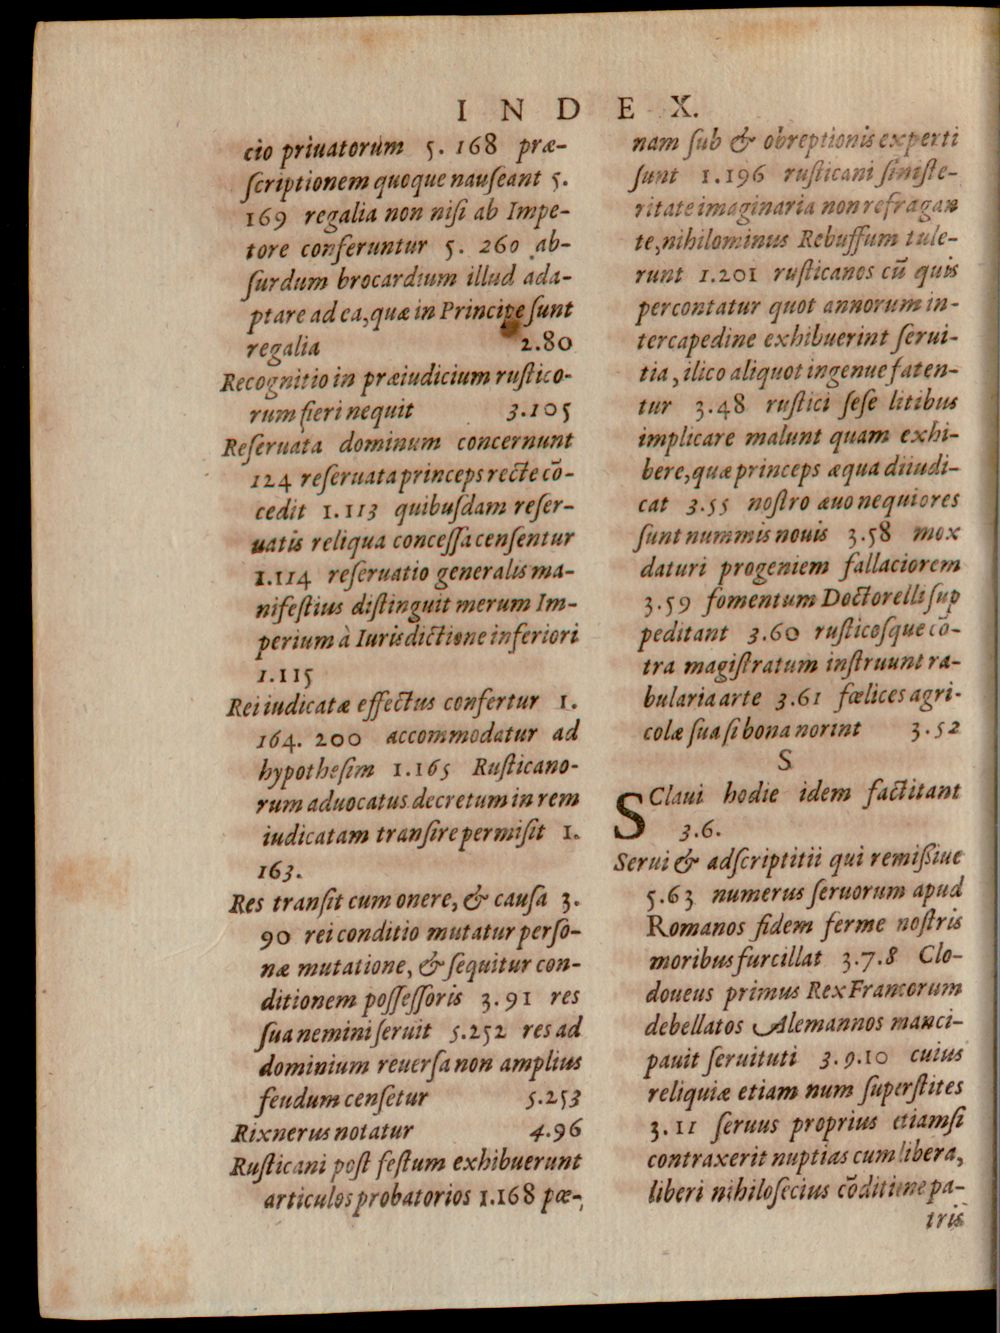 INDEX.
cio priuatorum 5. 168 præ-
ſcriptionem quoque nauſeant 5.
169 regalia non niſi ab Impe-
tore conferuntur 5. 260 ab-
ſurdum brocardium illud ada-
ptare ad ea, quæ in Principe ſunt
regalia 2.80
Recognitio in præiudicium ruſtico-
rum fieri nequit 3.105
Reſeruata dominum concernunt
124 reſeruata princeps recte cō-
cedit 1.113 quibuſdam reſer-
uatis reliqua conceſſa cenſentur
1.114 reſeruatio generalis ma-
nifeſtius diſtinguit merum Im-
perium à Iurisdictione inferiori
1.115
Rei iudicatæ effectus confertur 1.
164. 200 accommodatur ad
hypotheſim 1.165 Ruſticano-
rum aduocatus decretum in rem
iudicatam tranſire permiſit 1.
163.
Res tranſit cum onere, & cauſa 3.
90 rei conditio mutatur perſo-
næ mutatione, & ſequitur con-
ditionem poſſeſſoris 3.91 res
ſua nemini ſeruit 5.252 res ad
dominium reuerſa non amplius
feudum cenſetur 5.253
Rixnerus notatur 4.96
Ruſticani poſt feſtum exhibuerunt
articulos probatorios 1.168 pœ-
nam ſub & obreptionis experti
ſunt 1.196 ruſticani ſiniſte-
ritate imaginaria non refragan
te, nihilominus Rebuffum tule-
runt 1.201 ruſticanos cū quis
percontatur quot annorum in-
tercapedine exhibuerint ſerui-
tia, ilico aliquot ingenue faten-
tur 3.48 ruſtici ſeſe litibus
implicare malunt quam exhi-
bere, quæ princeps æqua diiudi-
cat 3.55 noſtro æuo nequiores
ſunt nummis nouis 3.58 mox
daturi progeniem fallaciorem
3.59 fomentum Doctorelli ſup
peditant 3.60 ruſticoſque cō-
tra magiſtratum inſtruunt ra-
bularia arte 3.61 fœlices agri-
colæ ſua ſi bona norint 3.52
S
SClaui hodie idem factitant
3.6.
Serui & adſcriptitii qui remißiue
5.63 numerus ſeruorum apud
Romanos fidem ferme noſtris
moribus furcillat 3.7.8 Clo-
doueus primus Rex Francorum
debellatos Alemannos manci-
pauit ſeruituti 3.9.10 cuius
reliquiæ etiam num ſuperſtites
3.11 ſeruus proprius etiamſi
contraxerit nuptias cum libera,
liberi nihiloſecius cōditione pa-
tris